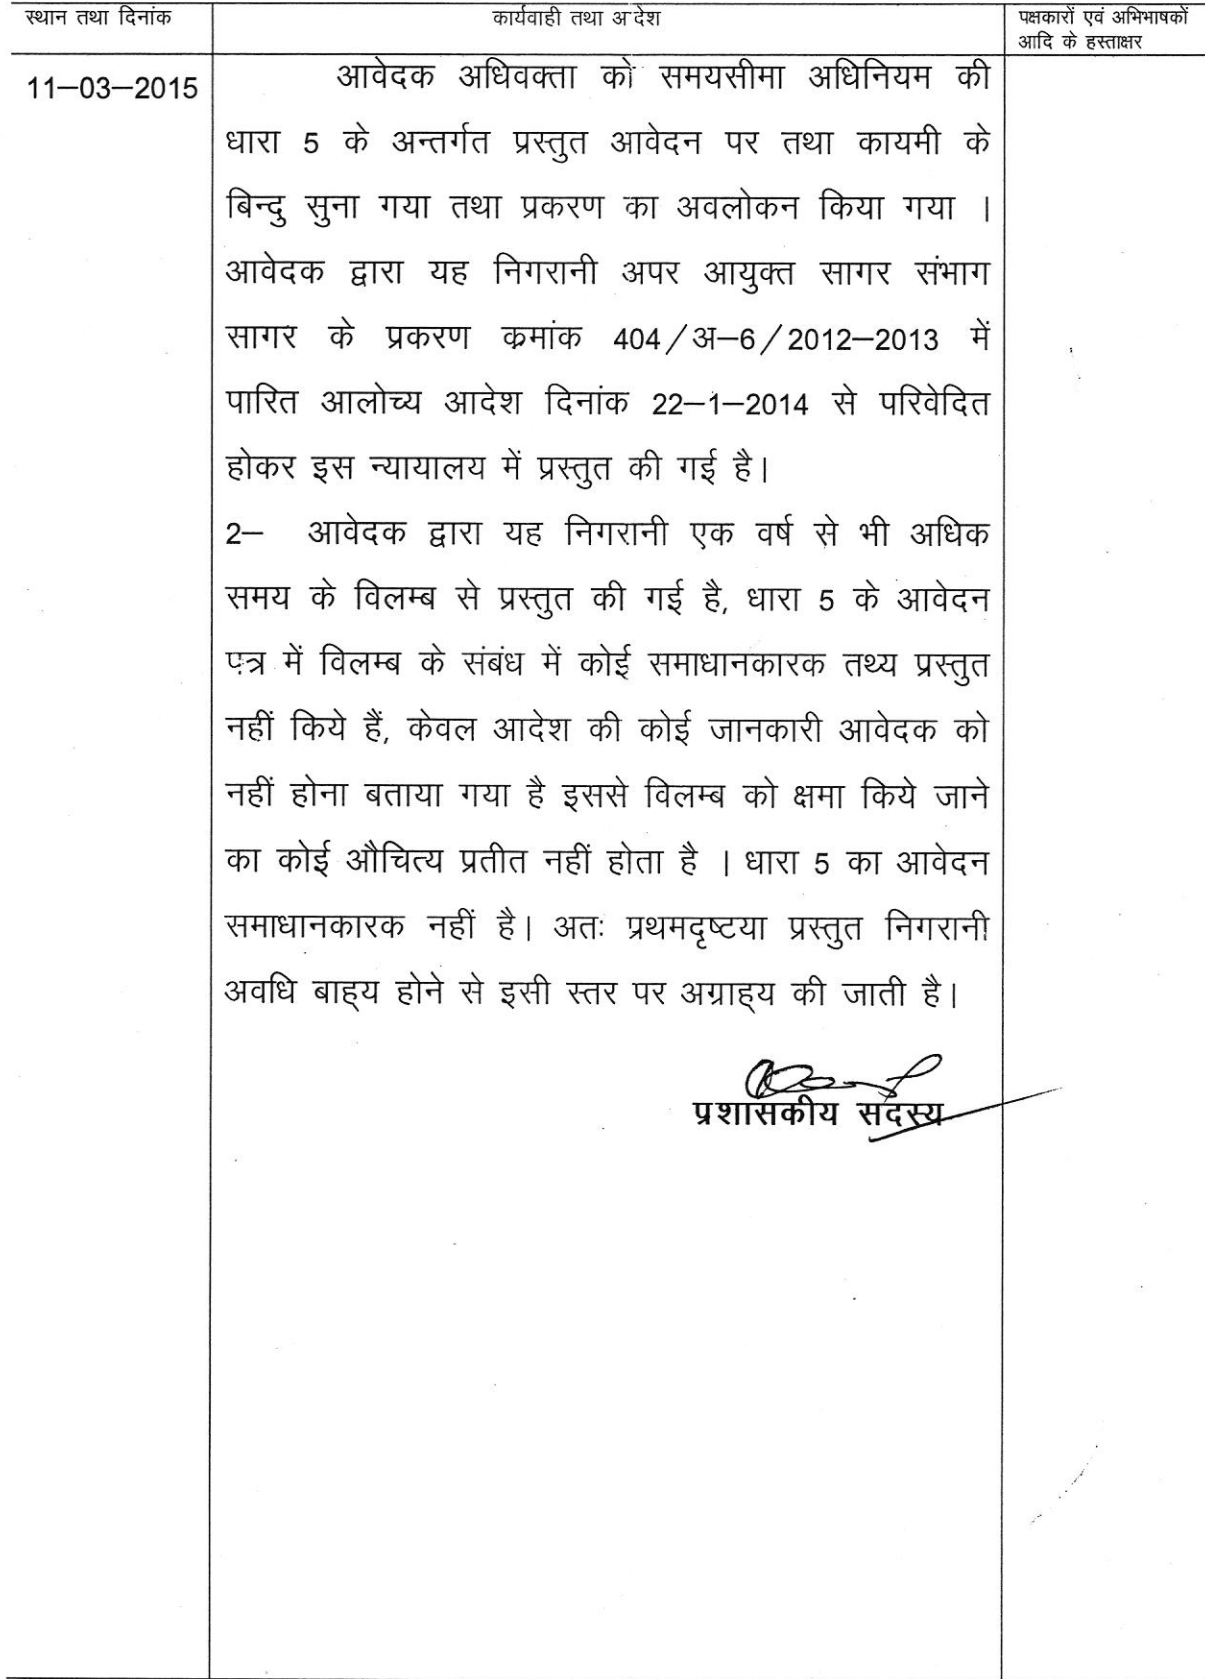 स्थान तथा दिनांक
कार्यवाही तथा आदेश
पक्षकारों एवं अभिभाषकों
आदि के हस्ताक्षर
11–03–2015
आवेदक अधिवक्ता को समयसीमा अधिनियम की
धारा 5 के अन्तर्गत प्रस्तुत आवेदन पर तथा कायमी के
बिन्दु सुना गया तथा प्रकरण का अवलोकन किया गया ।
आवेदक द्वारा यह निगरानी अपर आयुक्त सागर संभाग
सागर के प्रकरण कमांक 404/अ–6/2012–2013 में
पारित आलोच्य आदेश दिनांक 22–1–2014 से परिवेदित
होकर इस न्यायालय में प्रस्तुत की गई है।
2– आवेदक द्वारा यह निगरानी एक वर्ष से भी अधिक
समय के विलम्ब से प्रस्तुत की गई है, धारा 5 के आवेदन
पत्र में विलम्ब के संबंध में कोई समाधानकारक तथ्य प्रस्तुत
नहीं किये हैं, केवल आदेश की कोई जानकारी आवेदक को
नहीं होना बताया गया है इससे विलम्ब को क्षमा किये जाने
का कोई औचित्य प्रतीत नहीं होता है । धारा 5 का आवेदन
समाधानकारक नहीं है। अतः प्रथमदृष्टया प्रस्तुत निगरानी
अवधि बाह्य होने से इसी स्तर पर अग्राह्य की जाती है।
प्रशासकीय सदस्य